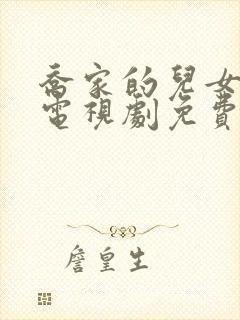 喬家的兒女
電視劇免費
詹皇生